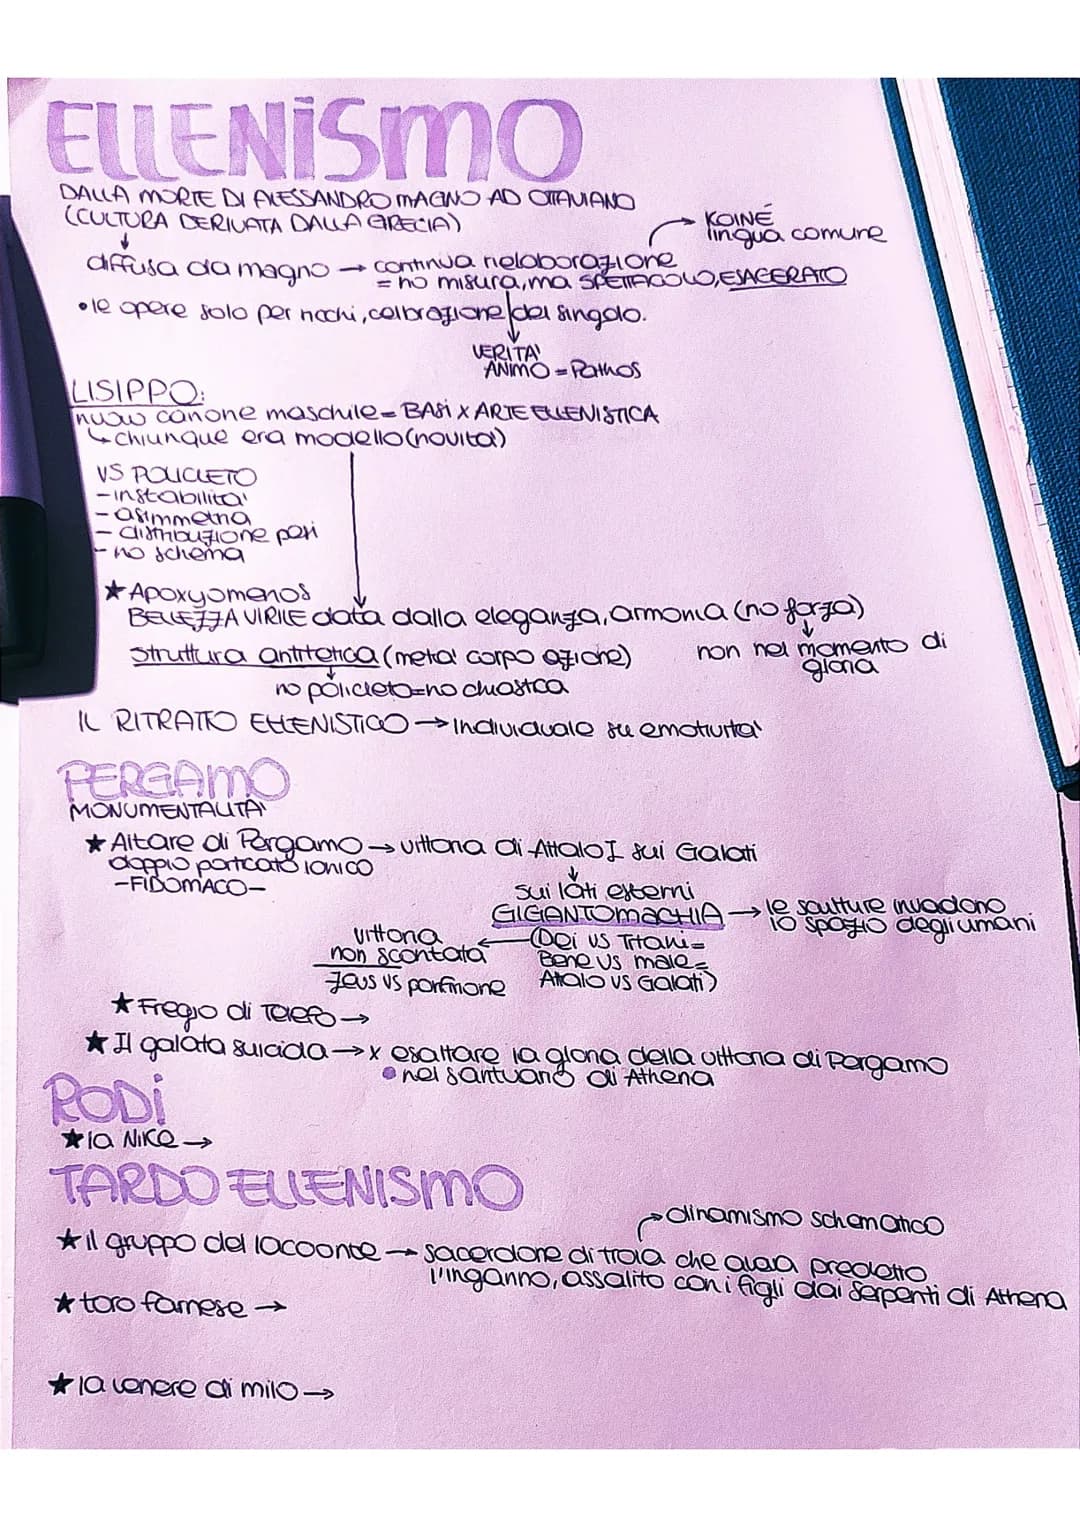 ELLENiSmO
DALLA MORTE DI ALESSANDRO MAGNO AD OTTAVIANO
(CULTURA DERIVATA DALLA GRECIA)
KOINÉ
lingua comune
diffusa da magno → continua rielaborazione
= no misura, ma SPETTACOLO, ESAGERATO
• le opere solo per ricchi, celbrazione del singolo.
VERITA'
ANIMO = Pathos
LISIPPO:
nuovo canone maschile = BASI X ARTE ELLENISTICA
↳ chiunque era modello (novita')
VS POLICLETO
- instabilita'
- asimmetria
- distribuzione pesi
- no schema
★ Apoxyomenos
BELLEZZA VIRILE data dalla eleganza, armonia (no forza)
struttura antitetica (meta' corpo azione)
non nel momento di
gloria
no policleto = no chiastica
IL RITRATTO ELLENISTICO → individuale su emotivita'
PERGAMO
MONUMENTALITA'
★ Altare di Pergamo → vittoria di Attalo I sui Galati
doppio porticato ionico
- FIDOMACO -
sui lati esterni
GIGANTOMACHIA → le sculture invadono
lo spazio degli umani
vittoria
non scontata
← (Dei vs Titani =
Bene vs male =
Attalo vs Galati)
Zeus vs porfirione
★ Fregio di Telefo →
★ Il galata suicida → x esaltare la gloria della vittoria di Pergamo
• nel santuario di Athena
RODi
★ la Nike →
TARDO ELLENISMO
dinamismo schematico
★ il gruppo del lacoonte → sacerdone di troia che avava predetto
l'inganno, assalito con i figli dai serpenti di Athena
★ toro farnese →
★ la venere di milo →